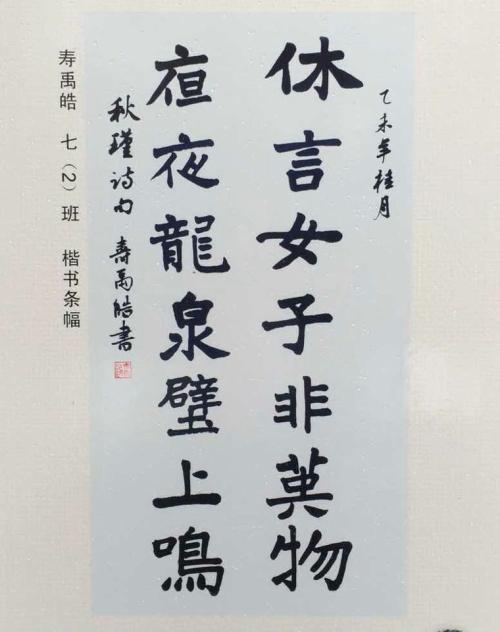 乙未年桂月
休言女子非英物
亱夜龍泉壁上鳴
秋瑾诗句 壽禹皓書
寿禹皓 七（2）班 楷书条幅